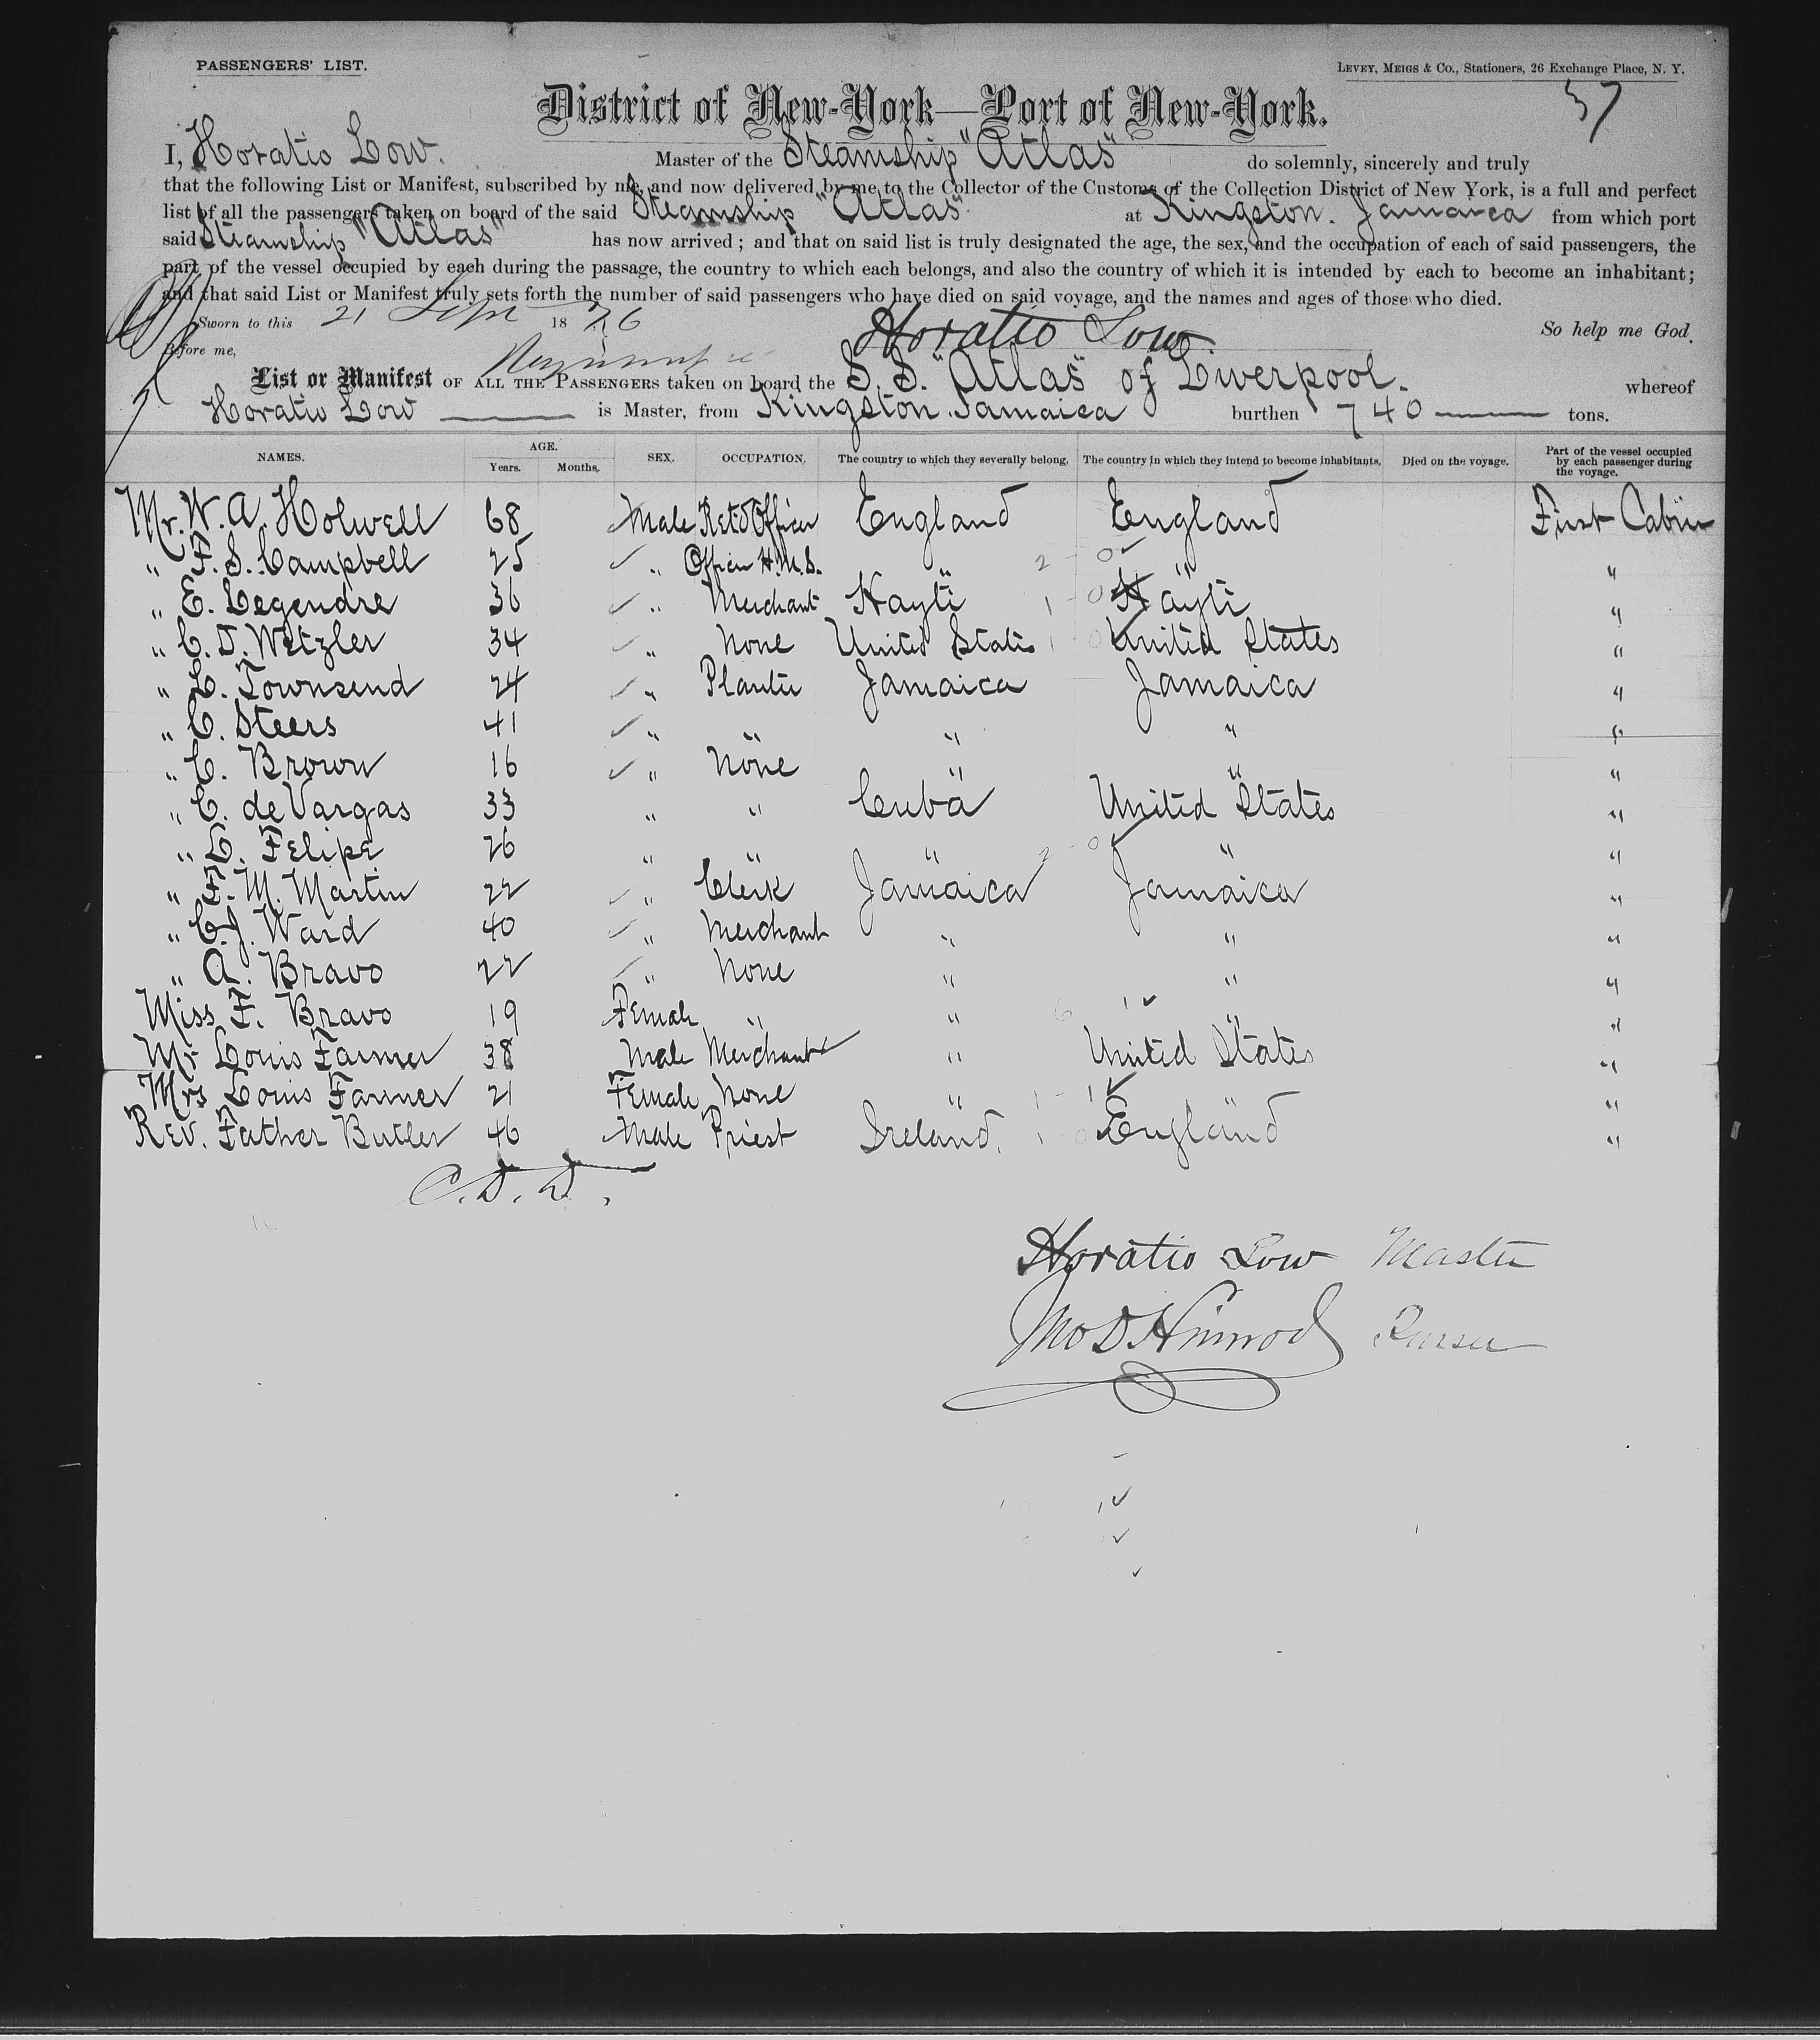 PASSENGERS' LIST.
LEVEY, MEIGS & CO., Stationers, 26 Exchange Place, N. Y.
57
District of New-York—Port of New-York.
I, Horatio Low. Master of the Steamship "Atlas" do solemnly, sincerely and truly
that the following List or Manifest, subscribed by me, and now delivered by me to the Collector of the Customs of the Collection District of New York, is a full and perfect
list of all the passengers taken on board of the said Steamship "Atlas" at Kingston. Jamaica from which port
said Steamship "Atlas" has now arrived; and that on said list is truly designated the age, the sex, and the occupation of each of said passengers, the
part of the vessel occupied by each during the passage, the country to which each belongs, and also the country of which it is intended by each to become an inhabitant;
and that said List or Manifest truly sets forth the number of said passengers who have died on said voyage, and the names and ages of those who died.
Sworn to this 21 Sept 1876 Horatio Low. So help me God.
Before me,
List or Manifest OF ALL THE PASSENGERS taken on board the S.S. "Atlas" of Liverpool. whereof
Horatio Low is Master, from Kingston. Jamaica burthen 740 tons.
NAMES. AGE. Years. Months. SEX. OCCUPATION. The country to which they severally belong. The country in which they intend to become inhabitants. Died on the voyage. Part of the vessel occupied by each passenger during the voyage.
Mr. W. A. Holwell 68 Male Retd Officer England England First Cabin
" F. S. Campbell 25 " Officer H.M.S. " 2 - 0 " "
" E. Legendre 36 " Merchant Hayti 1 - 0 Hayti "
" C. D. Wetzler 34 " None United States 1 - 0 United States "
" E. Townsend 24 " Planter Jamaica Jamaica "
" C. Steers 41 " " " " "
" C. Brown 16 " None " " "
" C. de Vargas 33 " " Cuba United States "
" L. Felipe 26 " " " 2 - 0 " "
" F. M. Martin 22 " Clerk Jamaica Jamaica "
" C. J. Ward 40 " Merchant " " "
" A. Bravo 22 " None " " "
Miss F. Bravo 19 Female " " 6 1 " "
Mr Louis Farmer 38 Male Merchant " United States "
Mrs Louis Farmer 21 Female None " 1 - 1 " "
Rev. Father Butler 46 Male Priest Ireland. 1 - 0 England "
Horatio Low Master
Purser